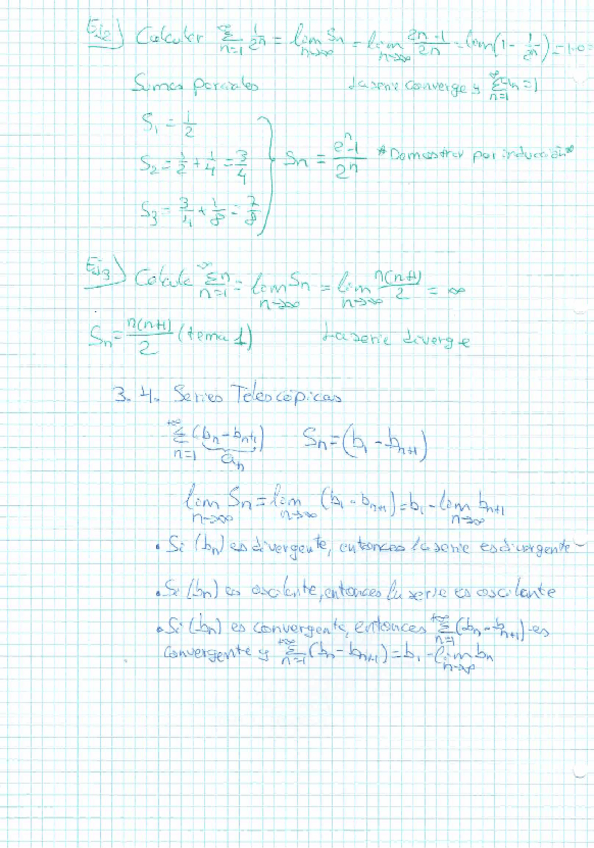 Ej2) Calcular ∑_{n=1}^{∞} 1/2^n = lim_{n→∞} Sn = lim_{n→∞} 2^n-1/2^n = lim(1 - 1/2^n) = 1-0=
Sumas parciales La serie converge y ∑_{n=1}^{+∞} an = 1
S1 = 1/2
S2 = 1/2 + 1/4 = 3/4 Sn = 2^n-1/2^n *Demostrar por inducción*
S3 = 3/4 + 1/8 = 7/8
Ej3) Calcule ∑_{n=1}^{+∞} n = lim_{n→∞} Sn = lim_{n→∞} n(n+1)/2 = ∞
Sn = n(n+1)/2 (tema 1) La serie diverge
3.4. Series Telescópicas
∑_{n=1}^{+∞} (bn - bn+1) Sn = (b1 - bn+1)
an
lim_{n→∞} Sn = lim_{n→∞} (b1 - bn+1) = b1 - lim_{n→∞} bn+1
• Si (bn) es divergente, entonces la serie es divergente
• Si (bn) es oscilante, entonces la serie es oscilante
• Si (bn) es convergente, entonces ∑_{n=1}^{+∞} (bn - bn+1) es
convergente y ∑_{n=1}^{+∞} (bn - bn+1) = b1 - lim_{n→∞} bn